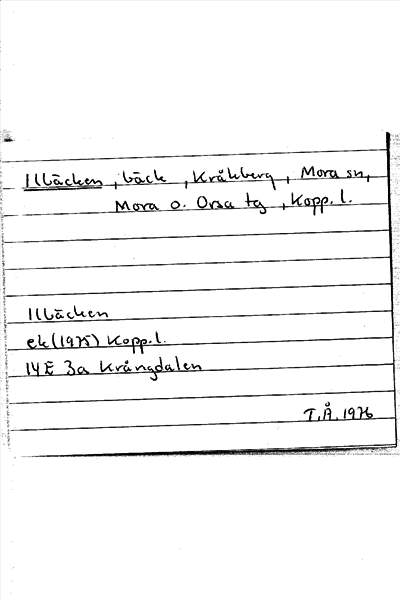 Illbäcken, bäck, Kråkberg, Mora sn,
Mora o. Orsa tg, Kopp. l.
Illbäcken
ek (1975) Kopp. l.
14E 3a Krångdalen
T.Å. 1976